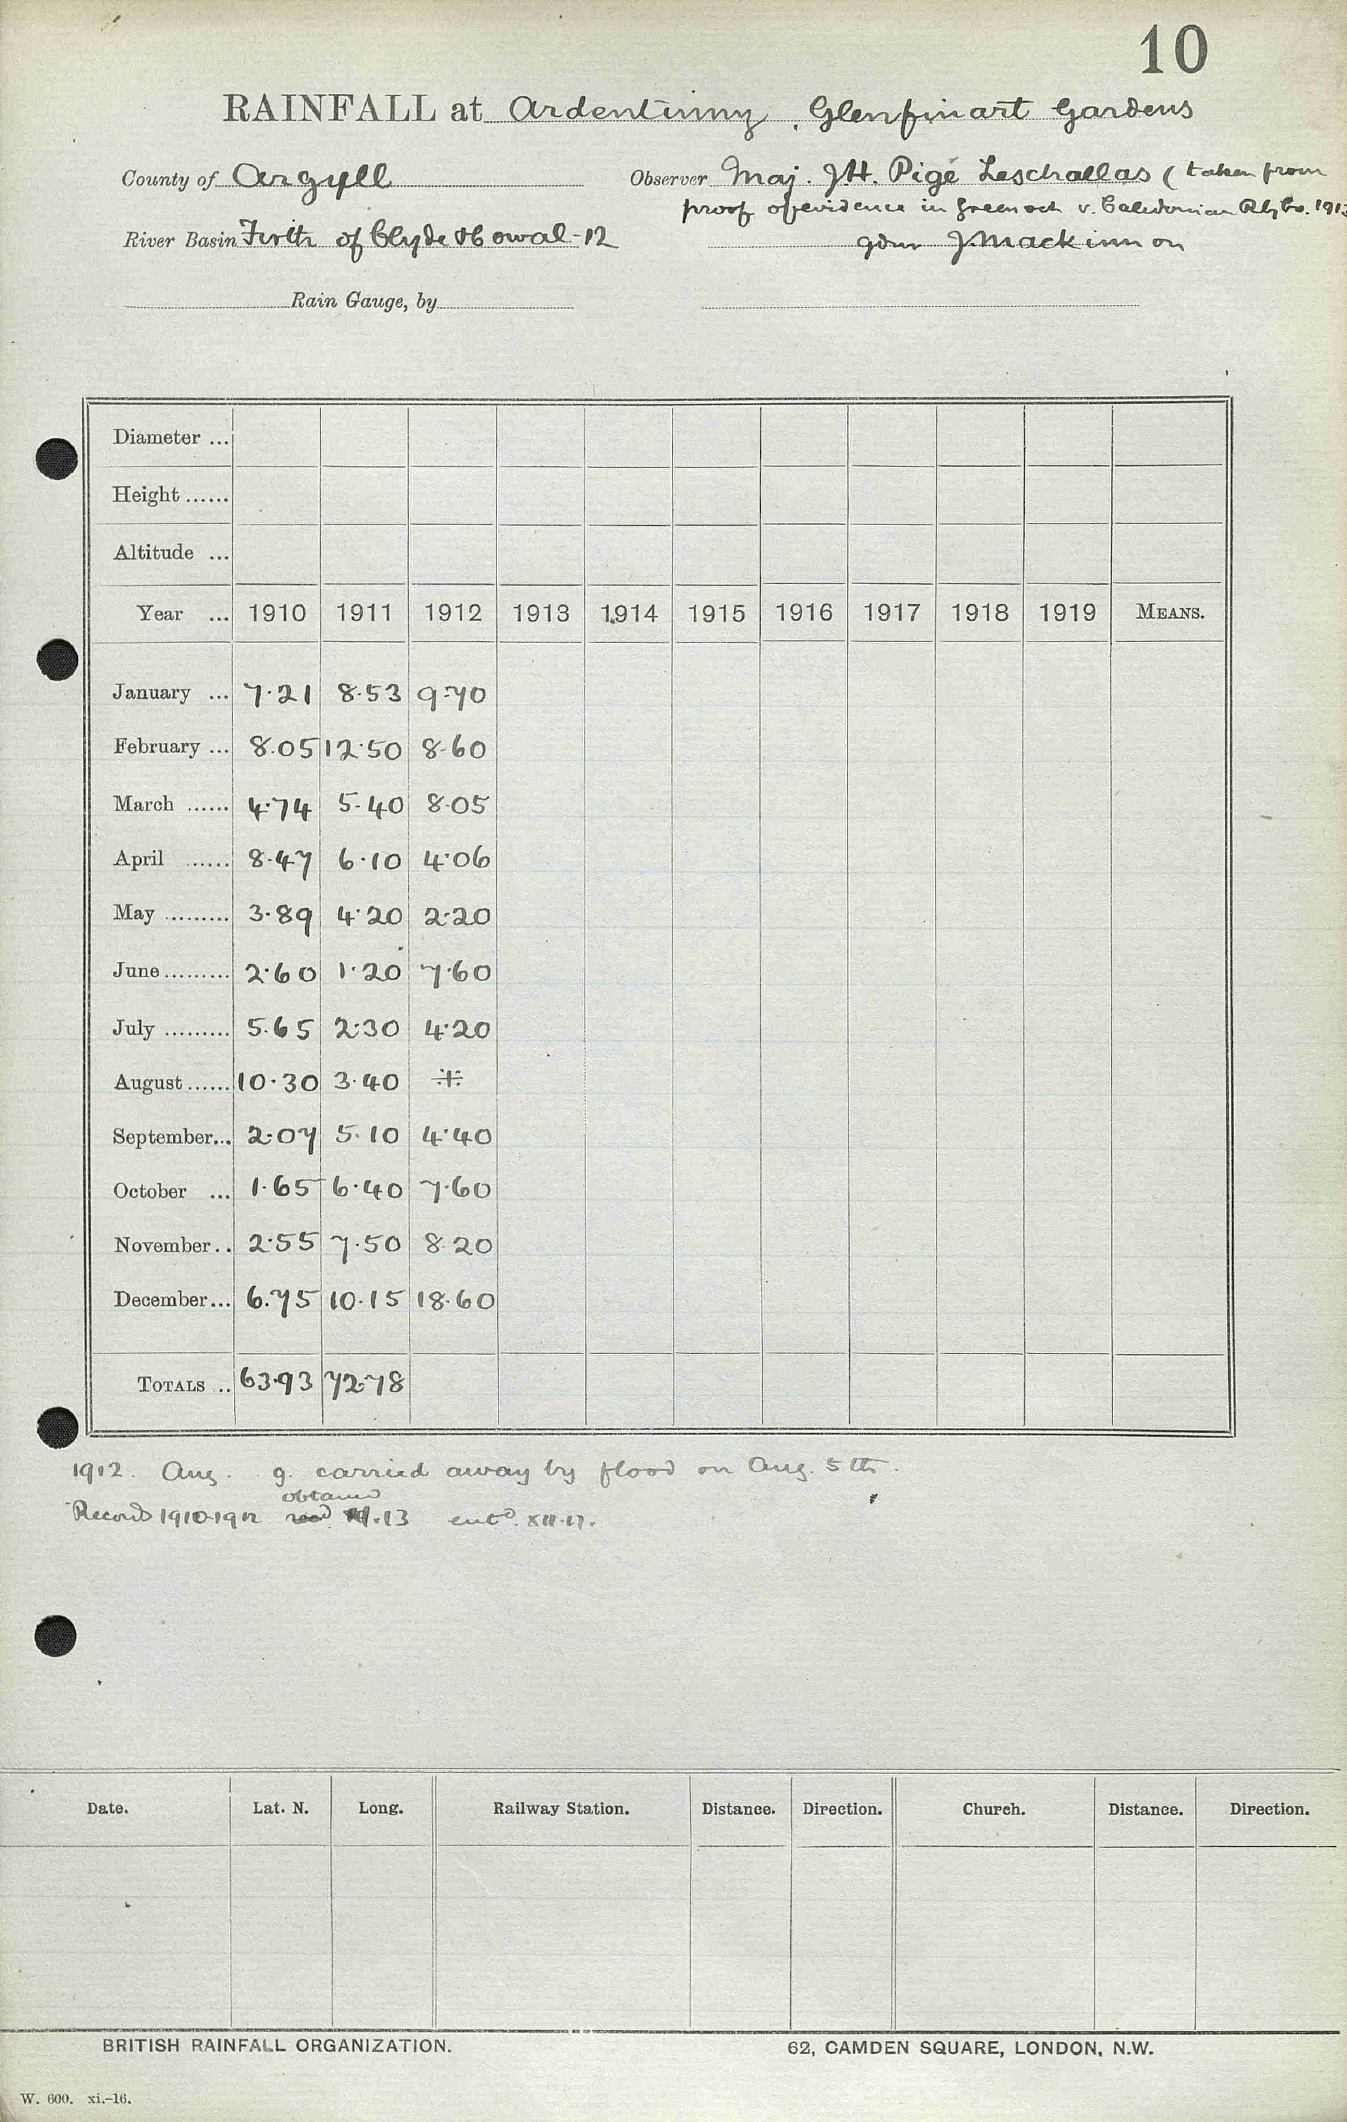 10
RAINFALL at Ardentinny, Glenfinart Gardens
County of Argyll Observer Maj. J.H. Pigé Leschallas (taken from
proof of evidence in Greenock v. Caledonian Rly Co. 1913
River Basin Firth of Clyde gdnr J. Mackinnon
Rain Gauge, by
Diameter ...
Height ......
Altitude ...
Year ... 1910 1911 1912 1913 1914 1915 1916 1917 1918 1919 MEANS.
January ... 7.21 8.53 9.70
February ... 8.05 12.50 8.60
March ...... 4.74 5.40 8.05
April ...... 8.47 6.10 4.06
May ......... 3.89 4.20 2.20
June ......... 2.60 1.20 7.60
July ......... 5.65 2.30 4.20
August ...... 10.30 3.40 *
September... 2.07 5.10 4.40
October ... 1.65 6.40 7.60
November.. 2.55 7.50 8.20
December... 6.75 10.15 18.60
TOTALS .. 63.93 72.78
1912. Aug. g. carried away by flood on Aug. 5th.
obtained
Records 1910-1912 13 entd. XII.17.
Date. Lat. N. Long. Railway Station. Distance. Direction. Church. Distance. Direction.
BRITISH RAINFALL ORGANIZATION. 62, CAMDEN SQUARE, LONDON, N.W.
W. 600. xi.-16.